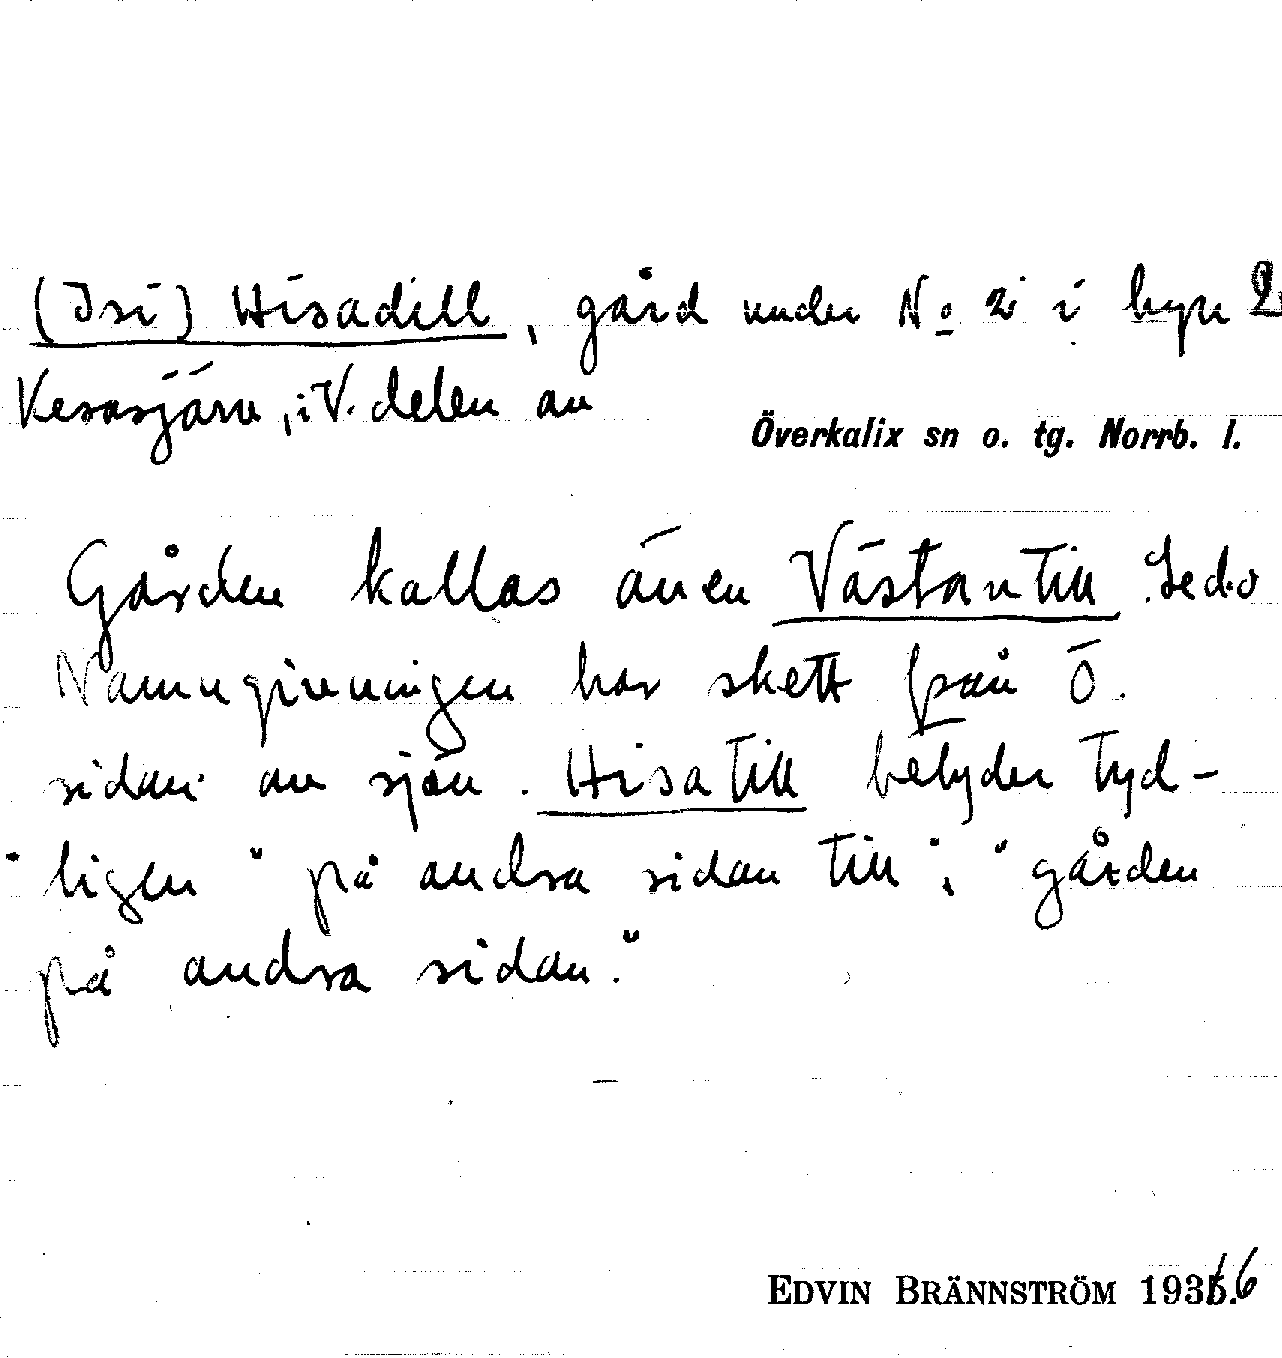 (Isi) Hisadill, gård under No 2 i byn
Kesasjärv, i V. delen av
Överkalix sn o. tg. Norrb. l.
Gården kallas även Västantill. Se d.o
Namngivningen har skett från Ö.
sidan av sjön. Hisatill betyder tyd-
ligen "på andra sidan till", "gården
på andra sidan."
EDVIN BRÄNNSTRÖM 1936